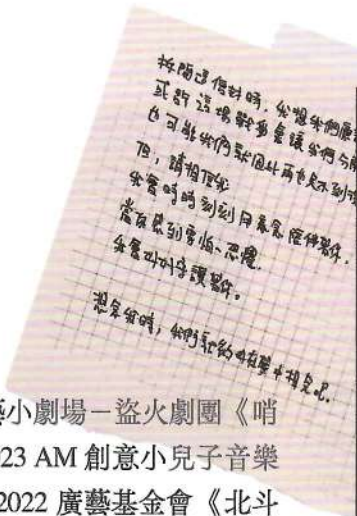 拆開這個封時，我想我們應
或許這場戰爭會讓我們分開
也可能我們就因此再也見不到
但，請相信我
我會時時刻刻用意念陪伴著你，
當你感到害怕、恐懼，
我會叫叫守護著你。
想念我時，我們就約好在夢中相見吧。
藝小劇場－盜火劇團《哨
23 AM 創意小兒子音樂
2022 廣藝基金會《北斗